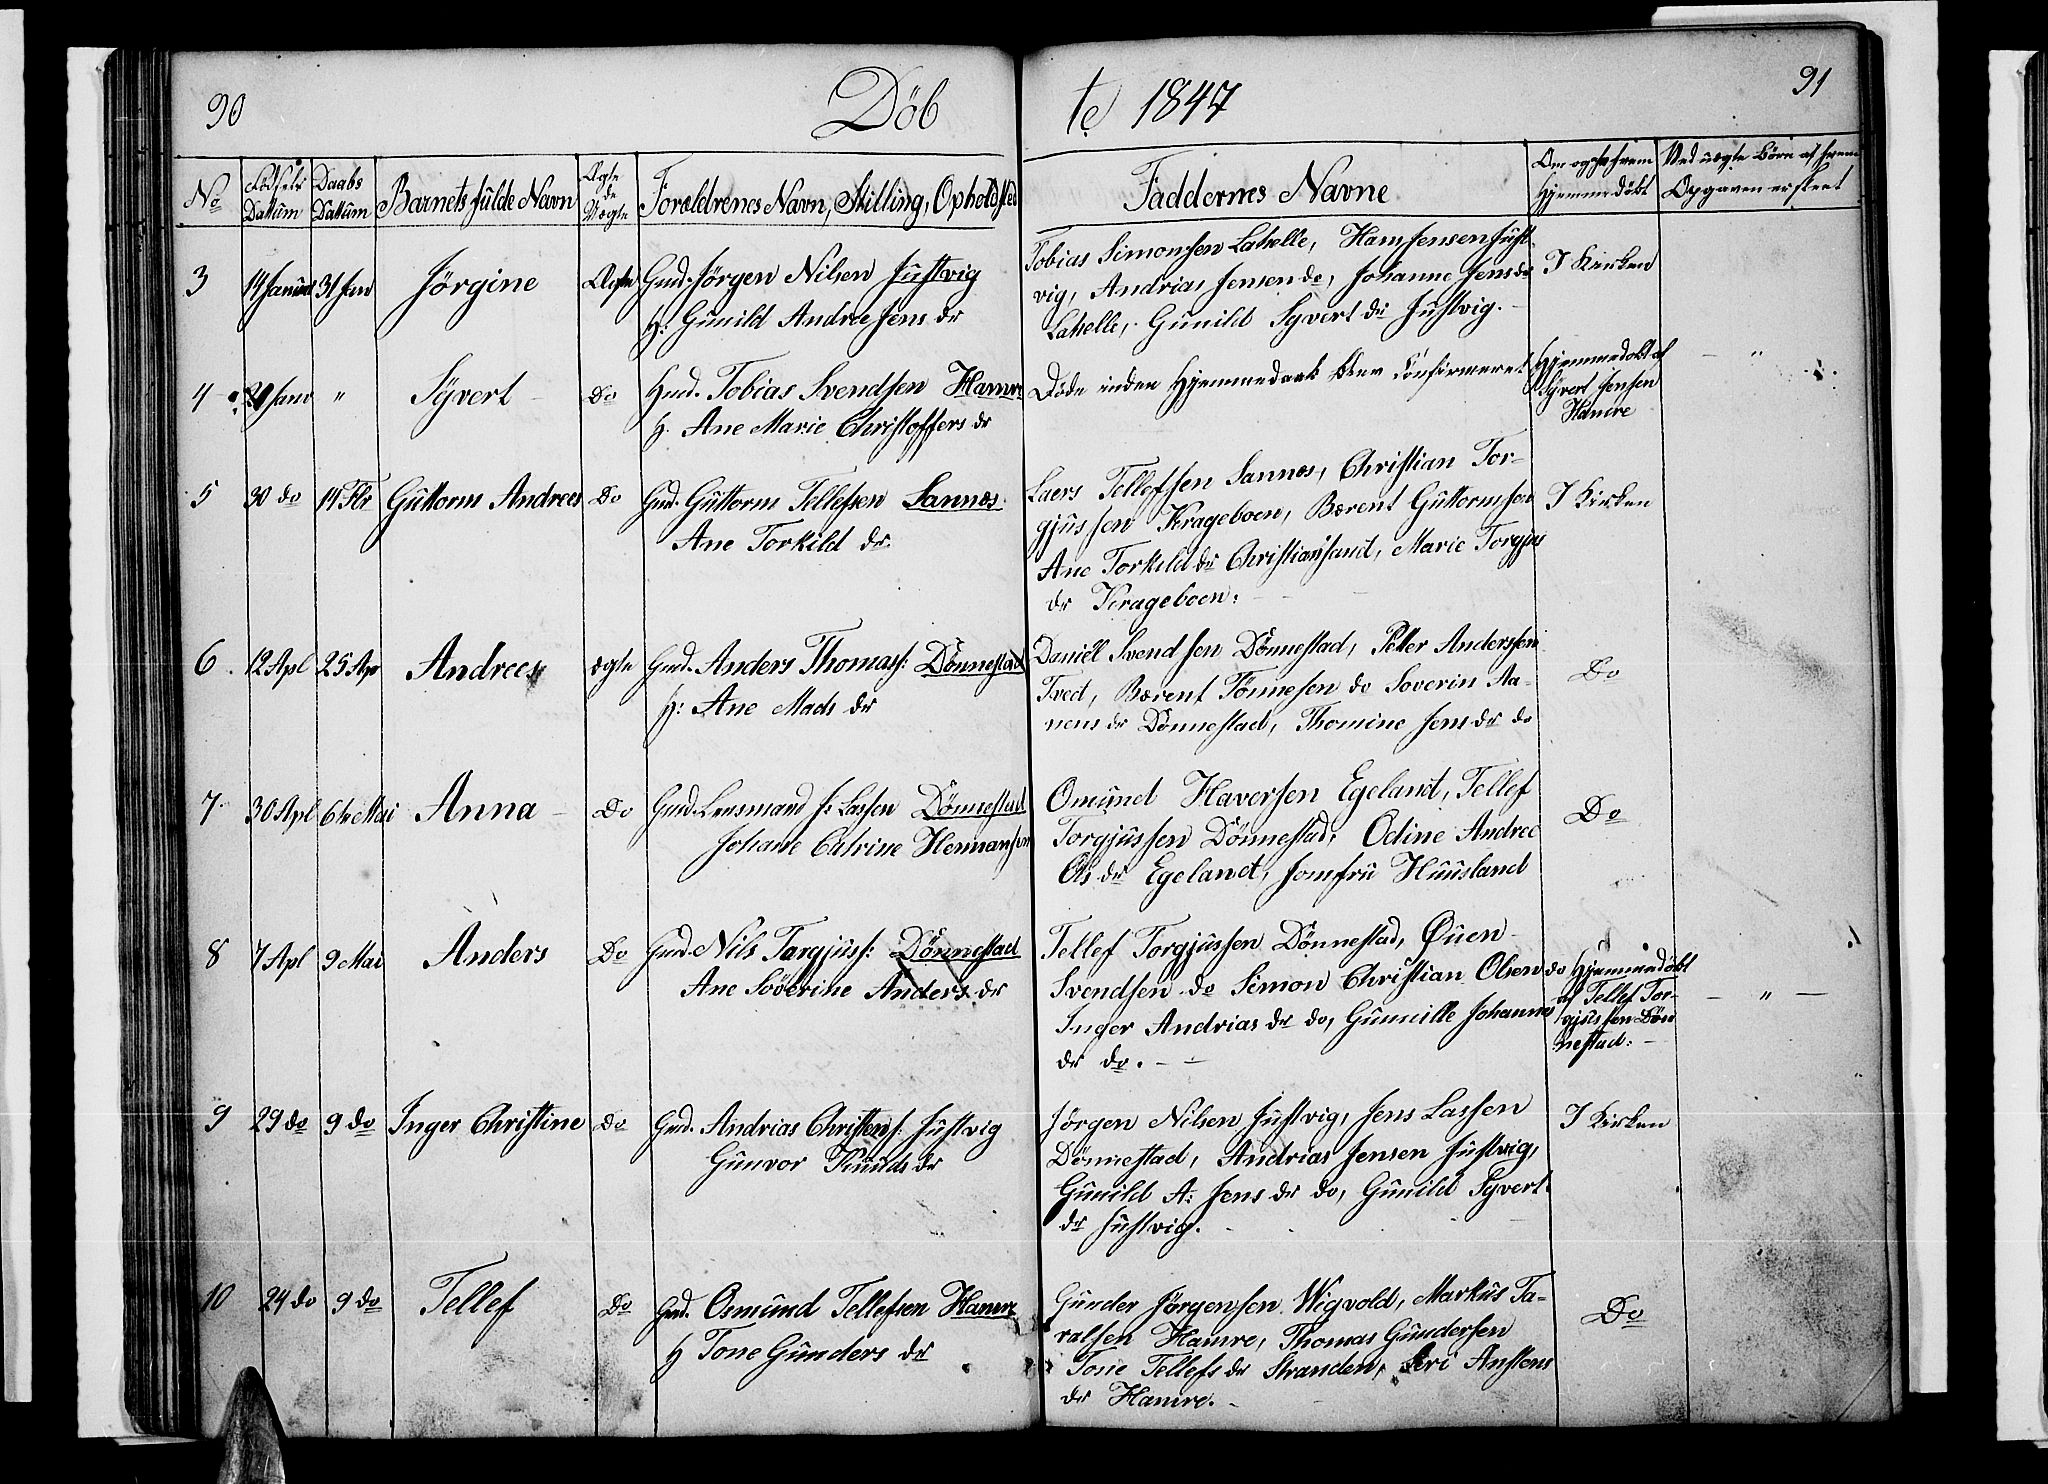 90
Döb
te 1847
91
No
Födsels Dattum
Daabs Dattum
Barnets fulde Navn
Ægte de Uægte
Forældrenes Navn, Stilling, Opholdsted
Faddernes Navne
Om ogsaa frem Hjemmedöbt
Ved uægte Börn af hvem Opgaven er skeet
3 14 Januar 31 Jan Jörgine Ægte Gmd. Jörgen Nilsen Justvig
H: Gunild Andrea Jens dr
Tobias Simonsen Lahelle, Hans Jensen Just-
vig, Andrias Jensen do, Johanne Jens dr
Lahelle, Gunild Syvert dr Justvig. -
I Kirken
4 Janr " Syvert Do Hmd. Tobias Svendsen Hamre
H. Ane Marie Christoffers dr
Döde inden Hjemmedaab blev Confirmeret
Hjemmedöbt af
Syvert Jensen
Hamre
- "
5 30 do 14 Fbr Guttorm Andreas Do Gmd. Guttorm Tellefsen Sannæs
Ane Torkild dr
Laers Tellefsen Sannæs, Christian Tor-
gjussen Krageboen, Bærent Guttormsen
Ane Torkild dr Christiansand, Marie Torgjus
dr Krageboen:
I Kirken
6. 12 Apl 25 Ap Andreas ægte Gmd. Anders Thomass: Dönnestad
H: Ane Mads dr
Daniel Svendsen Dönnestad, Peter Anderssen
Tved, Bærent Tönnesen do Soverin Aa-
nens dr Dönnestad, Thomine Jens dr do
Do
7 30 Apl 6te Mai Anna Do Gmd. Lensmand J: Lassen Dönnestad
Johane Catrine Hermansen
Omund Haversen Egeland, Tellef
Torgjussen Dönnestad, Odine Andrea
Ols dr Egeland, Jomfru Huusland
Do
8 7 Apl 9 Mai Anders Do Gmd. Nils Targjuss: Dönnestad
Ane Söverine Anders dr
Tellef Torgjussen Dönnestad, Ouen
Svendsen do Simon Christian Olsen do
Inger Andrias dr do, Gunnille Johannes
dr do. - -
Hjemmedöbt
af Tellef Tor-
gjussen Dön
nestad: -
- " -
9 29 do 9 do Inger Christine Do Gmd. Andrias Christens: Justvig
Gunvor Knuds dr
Jörgen Nilsen Justvig, Jens Lassen
Dönnestad, Andrias Jensen Justvig,
Gunild A: Jens dr do, Gunild Syvert
dr Justvig.
I Kirken
10 24 do 9 do Tellef Do Gmd. Osmund Tellefsen Hamre
H Tone Gunders dr
Gunder Jörgensen Wigvold, Markus Ta-
ralsen Hamre, Thomas Gundersen
Tone Tellefs dr Stranden, Seri Anstens
dr Hamre. -
Do